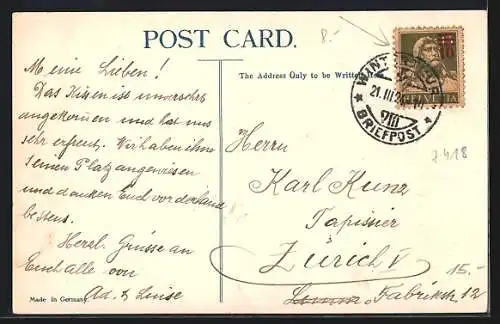 POST CARD.
8.-
The Address Only to be Written Here
Meine Lieben!
Das Kissen ist unversehrt
angekommen und hat uns
sehr erfreut. Wir haben ihm
seinen Platz angewiesen
und danken Euch vorderhand
bestens.
Herzl. Grüsse an
Euch alle von
Ad. & Luise
Made in Germany
10
HELVETIA
WINTERTHUR
21.III.2
VIII
★ BRIEFPOST ★
Herrn
Karl Kunz
Tapissier
Zürich V
Fabrikstr 12
15.-